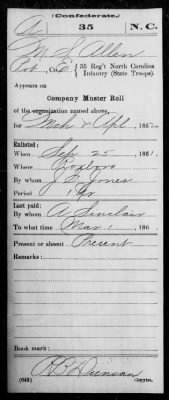 (Confederate.)
A 35 N. C.
M. S. Allen
Pvt, Co. E, 35 Reg't North Carolina
Infantry (State Troops)
Appears on
Company Muster Roll
of the organization named above,
for Mch & Apl, 1862
Enlisted:
When Sep 25, 1861
Where Roxboro
By whom J. Jones
Period 1 Yr
Last paid:
By whom A. Sinclair
To what time Mar 1, 186
Present or absent Present
Remarks:
Book mark:
R B Duncan
(642) Copyist.